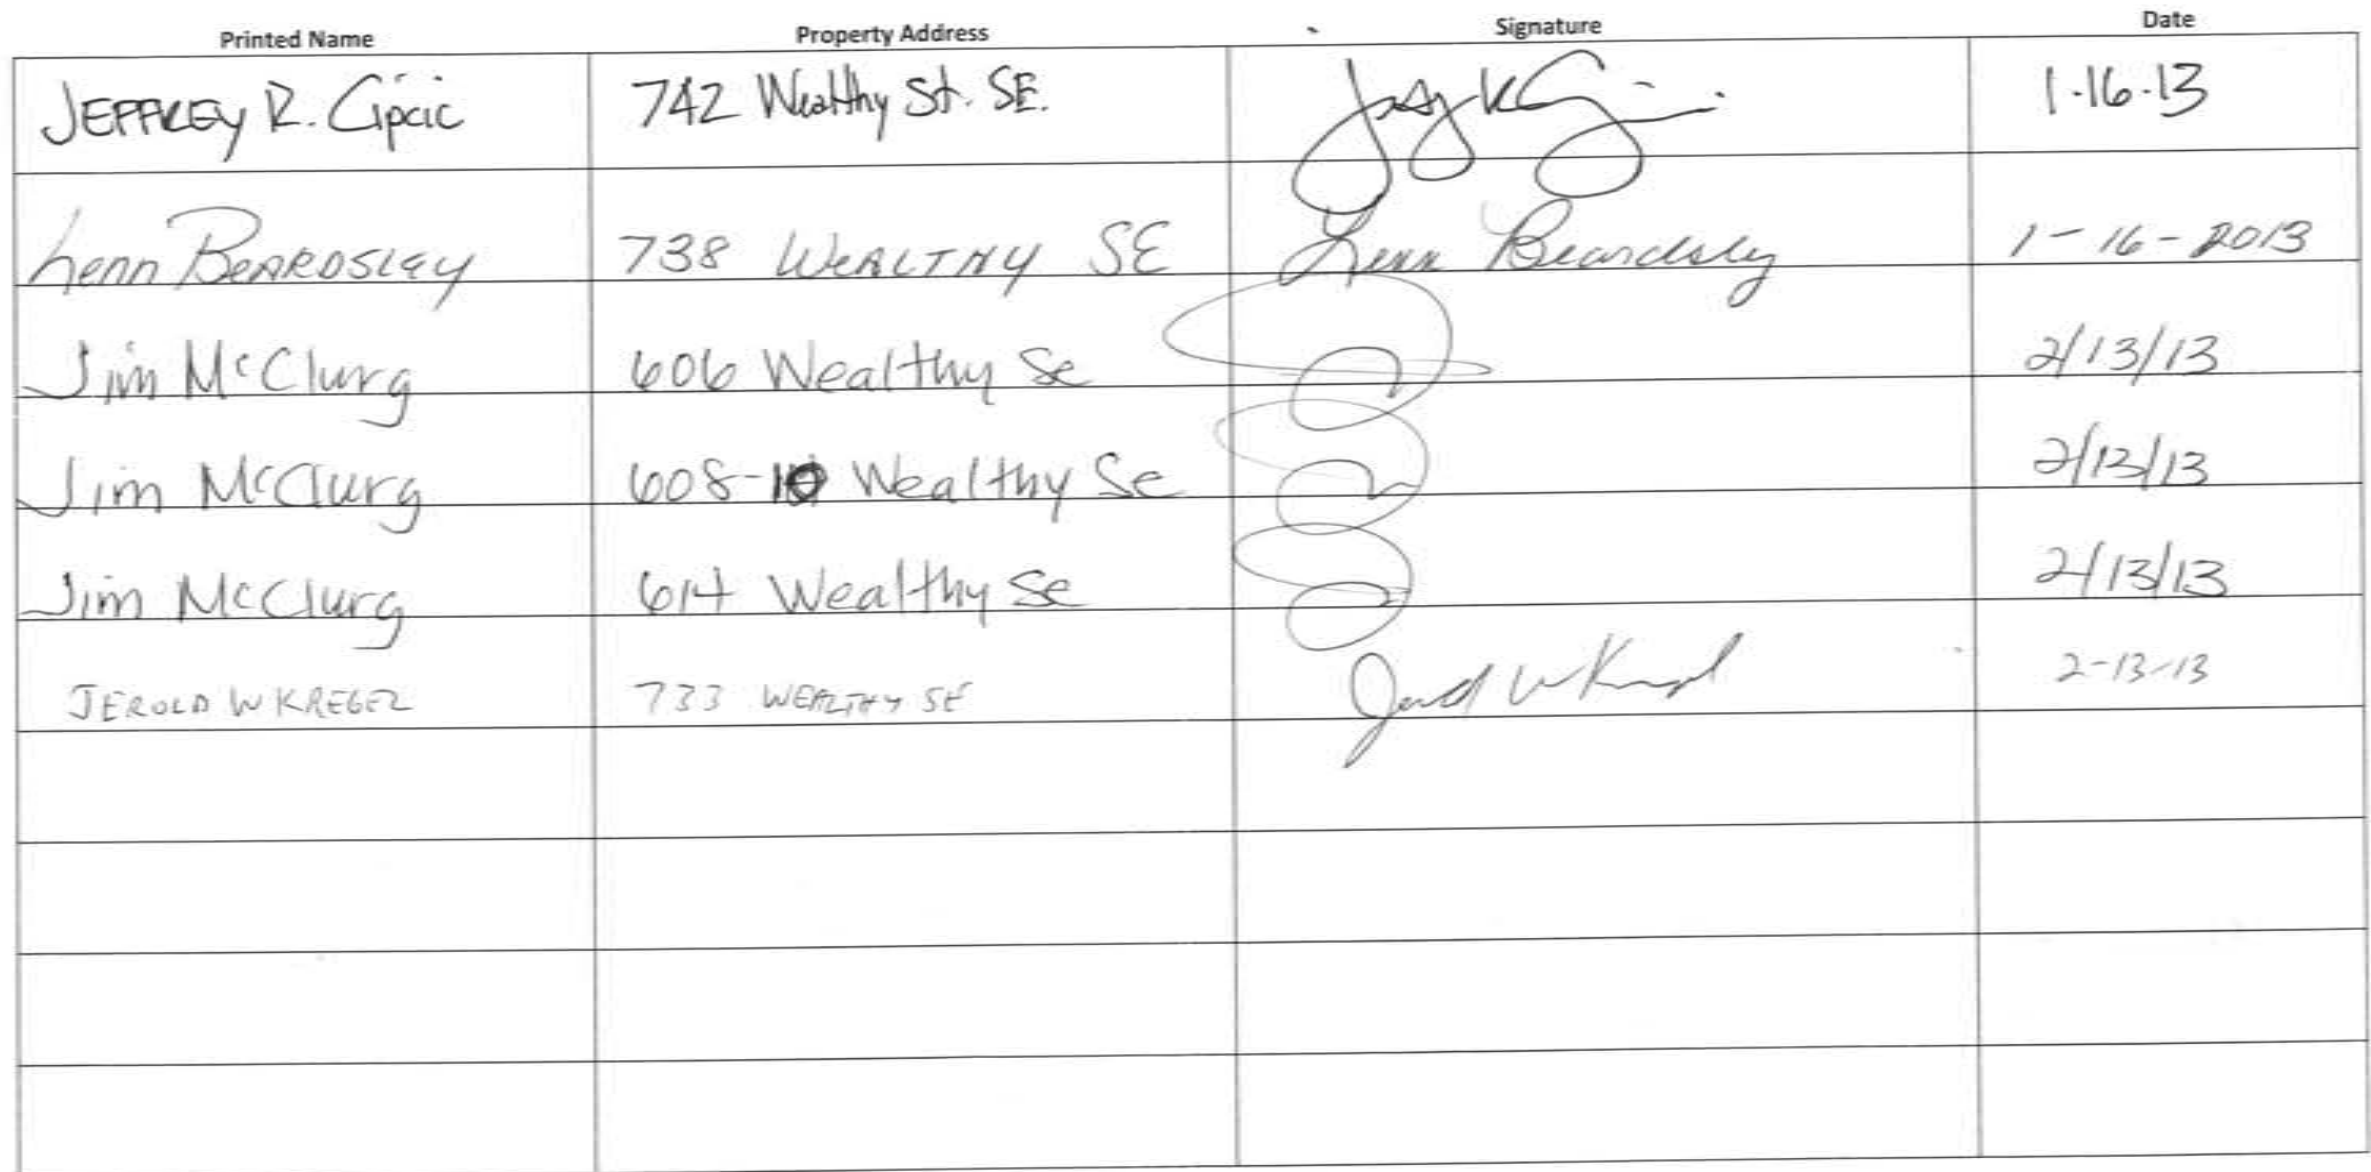 Printed Name Property Address Signature Date
JEFFREY R. Cipcic 742 Wealthy St. SE. 1.16.13
Lenn BEARDSLEY 738 WEALTHY SE Lenn Beardsley 1-16-2013
Jim McClurg 606 Wealthy Se 2/13/13
Jim McClurg 608-10 Wealthy Se 2/13/13
Jim McClurg 614 Wealthy Se 2/13/13
JEROLD W KREGEL 733 WEALTHY SE 2-13-13